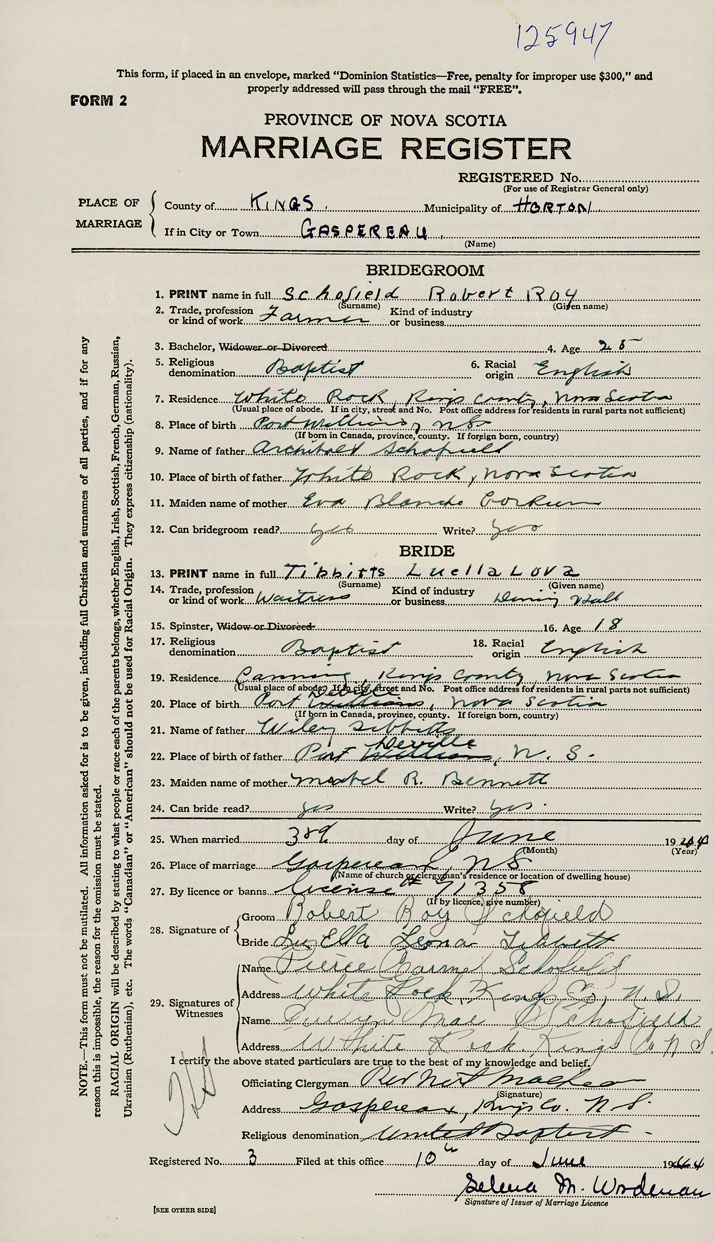 125947
This form, if placed in an envelope, marked "Dominion Statistics—Free, penalty for improper use $300," and
properly addressed will pass through the mail "FREE".
FORM 2
PROVINCE OF NOVA SCOTIA
MARRIAGE REGISTER
REGISTERED No.
(For use of Registrar General only)
PLACE OF MARRIAGE
County of KINGS. Municipality of HORTON
If in City or Town GASPEREAU.
(Name)
BRIDEGROOM
1. PRINT name in full Schofield Robert Roy
(Surname) (Given name)
2. Trade, profession or kind of work Farmer Kind of industry or business
3. Bachelor, Widower or Divorced 4. Age 25
5. Religious denomination Baptist 6. Racial origin English
7. Residence White Rock, Kings County, Nova Scotia
(Usual place of abode. If in city, street and No. Post office address for residents in rural parts not sufficient)
8. Place of birth Port Williams, NS
(If born in Canada, province, county. If foreign born, country)
9. Name of father Archibald Schofield
10. Place of birth of father White Rock, Nova Scotia
11. Maiden name of mother Eva Blanche
12. Can bridegroom read? yes Write? yes
BRIDE
13. PRINT name in full Tibbitts Luella Lova
(Surname) (Given name)
14. Trade, profession or kind of work Waitress Kind of industry or business Dining Hall
15. Spinster, Widow or Divorced. 16. Age 18
17. Religious denomination Baptist 18. Racial origin English
19. Residence Canning, Kings County, Nova Scotia
(Usual place of abode. If in city, street and No. Post office address for residents in rural parts not sufficient)
20. Place of birth Port Williams, Nova Scotia
(If born in Canada, province, county. If foreign born, country)
21. Name of father Wiley Tibbitts
22. Place of birth of father Port Williams, N. S.
23. Maiden name of mother Mabel R. Bennett
24. Can bride read? yes Write? yes.
25. When married 3rd day of June 1944
(Month) (Year)
26. Place of marriage Gaspereau, NS
(Name of church or clergyman's residence or location of dwelling house)
27. By licence or banns License # 71358
(If by licence, give number)
28. Signature of
Groom Robert Roy Schofield
Bride LuElla Leona Tibbitt
29. Signatures of Witnesses
Name Pierce Schofield
Address White Rock Kings Co, N.S.
Name Mae Schofield
Address White Rock Kings Co N.S.
I certify the above stated particulars are true to the best of my knowledge and belief.
Officiating Clergyman
(Signature)
Address Gaspereau, Kings Co. N.S.
Religious denomination United Baptist -
Registered No. 3 Filed at this office 10th day of June 1944
Selena M. Wordman
Signature of Issuer of Marriage Licence
[SEE OTHER SIDE]
NOTE.—This form must not be mutilated. All information asked for is to be given, including full Christian and surnames of all parties, and if for any
reason this is impossible, the reason for the omission must be stated.
RACIAL ORIGIN will be described by stating to what people or race each of the parents belongs, whether English, Irish, Scottish, French, German, Russian,
Ukrainian (Ruthenian), etc. The words "Canadian" or "American" should not be used for Racial Origin. They express citizenship (nationality).